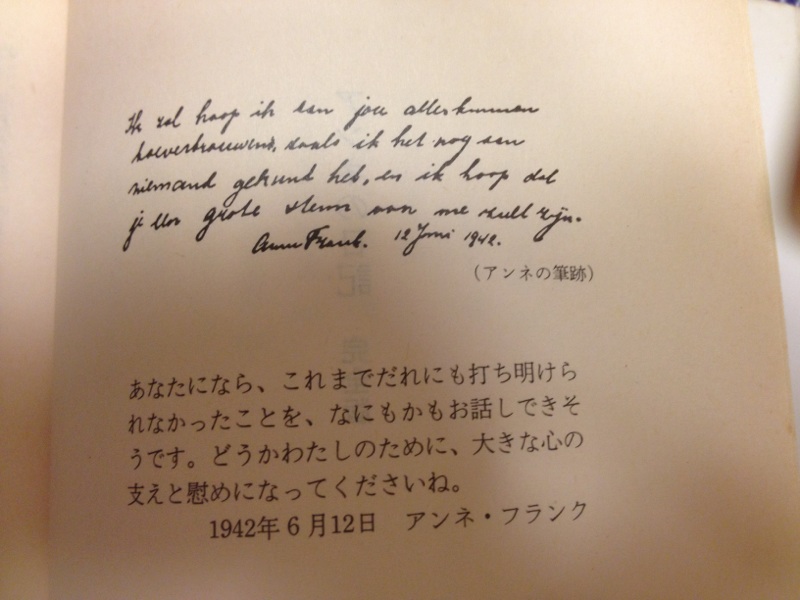 Ik zal hoop ik aan jou alles kunnen
toevertrouwen, zoals ik het nog aan
niemand gekund heb, en ik hoop dat
je een grote steun aan me zult zijn.
Anne Frank. 12 Juni 1942.
（アンネの筆跡）
あなたになら、これまでだれにも打ち明けら
れなかったことを、なにもかもお話しできそ
うです。どうかわたしのために、大きな心の
支えと慰めになってくださいね。
1942年6月12日 アンネ・フランク